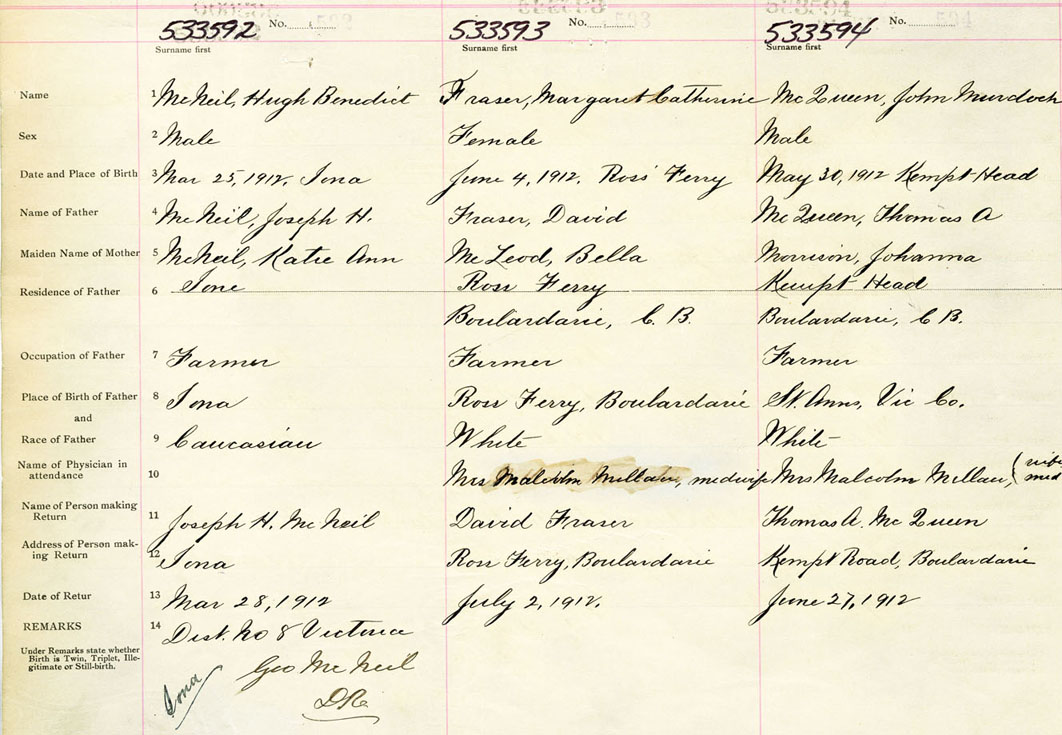 533592 No. 533593 No. 533594 No.
Surname first Surname first Surname first
Name 1 McNeil, Hugh Benedict Fraser, Margaret Catherine McQueen, John Murdoch
Sex 2 Male Female Male
Date and Place of Birth 3 Mar 25, 1912, Iona June 4, 1912, Ross' Ferry May 30, 1912 Kempt Head
Name of Father 4 McNeil, Joseph H. Fraser, David McQueen, Thomas A
Maiden Name of Mother 5 McNeil, Katie Ann McLeod, Bella Morrison, Johanna
Residence of Father 6 Ione Ross Ferry Kempt Head
Boulardarie, C. B. Boulardarie, C B.
Occupation of Father 7 Farmer Farmer Farmer
Place of Birth of Father 8 Iona Ross Ferry, Boulardarie St. Anns, Vic Co.
and
Race of Father 9 Caucasian White White
Name of Physician in
attendance 10 Mrs Malcolm McLean, midwife Mrs Malcolm McLean, (
Name of Person making
Return 11 Joseph H. McNeil David Fraser Thomas A. McQueen
Address of Person mak-
ing Return 12 Iona Ross Ferry, Boulardarie Kempt Road, Boulardarie
Date of Retur 13 Mar 28, 1912 July 2, 1912. June 27, 1912
REMARKS 14 Dist. No 8 Victoria
Under Remarks state whether
Birth is Twin, Triplet, Ille-
gitimate or Still-birth.
Geo McNeil
Iona DR